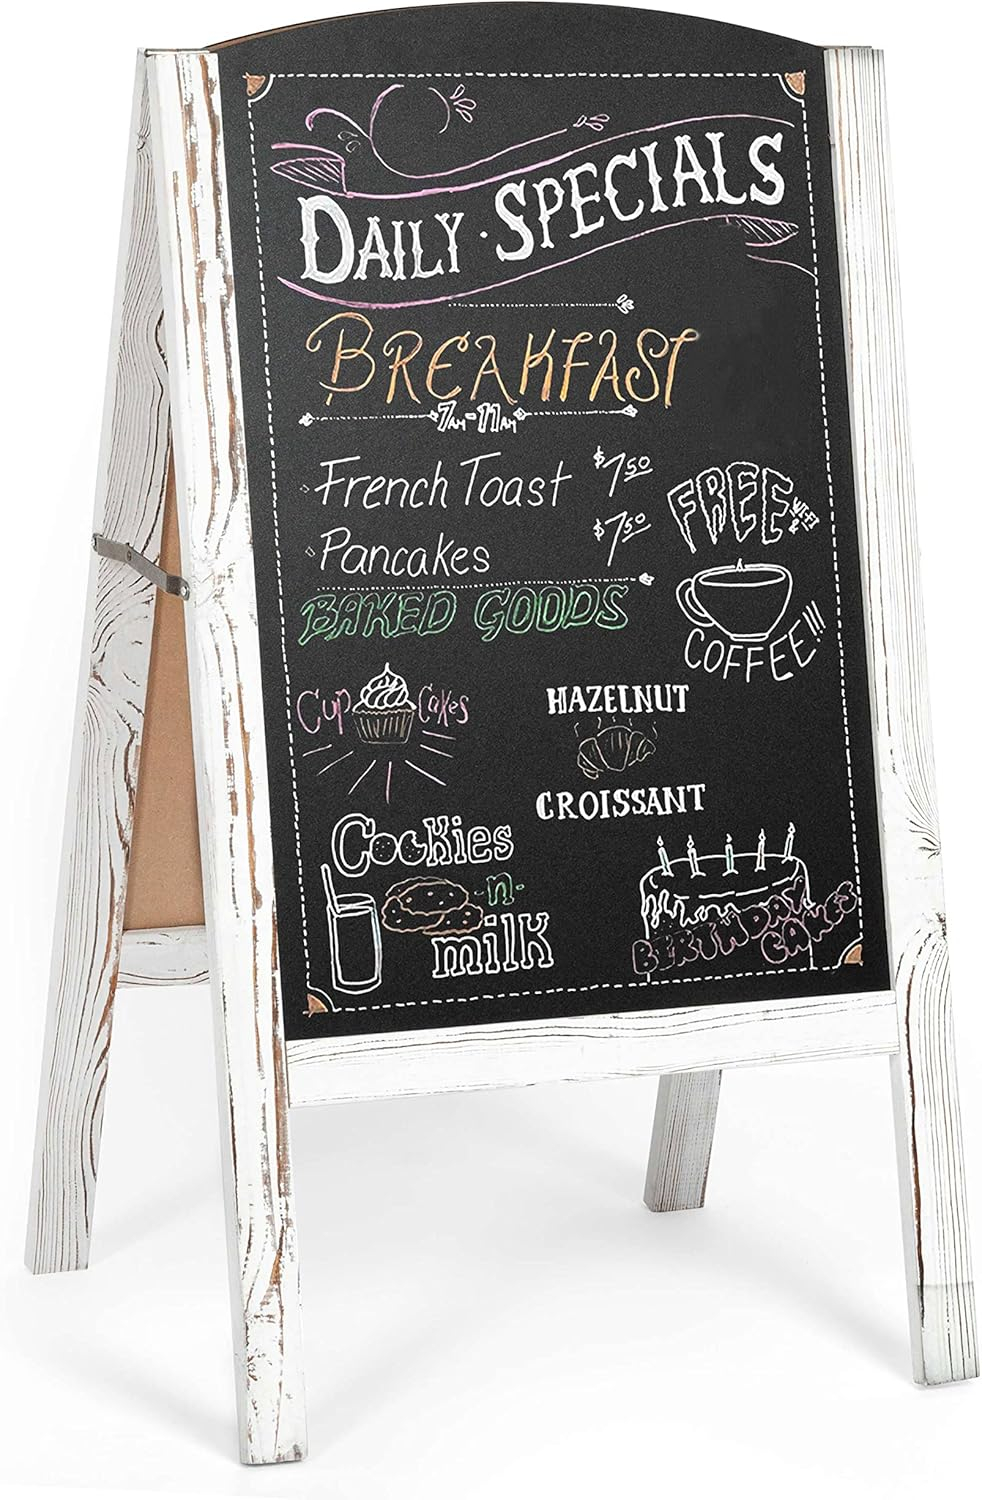 DAILY · SPECIALS
BREAKFAST
7AM-11AM
French Toast $7.50
Pancakes $7.50
FREE WI-FI &
COFFEE!!!
BAKED GOODS
Cup Cakes
HAZELNUT
CROISSANT
Cookies
-n-
milk
BERTHDAY
CAKES